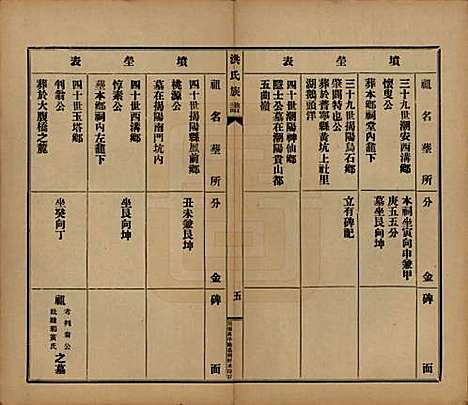 祖名塋所
分金
碑面
三十九世潮安西溝鄉
懷叟公
葬本鄉祠堂內龕下
本祠坐寅向申兼甲
庚五五分
墓坐艮向坤
三十九世揭陽烏石鄉
肇開特也公
葬於普寧縣黃坑上社里
湖鵝頭洋
立有碑記
四十世潮陽神仙鄉
隱士公墓在潮陽貴山都
五曲嶺
墳塋表
洪氏族譜
五
墳塋表
祖名塋所
分金
碑面
四十世揭陽縣鳳前鄉
桃源公
墓在揭陽南門坑內
丑未兼艮坤
四十世西溝鄉
惇素公
葬本鄉祠內左龕下
坐艮向坤
四十世玉塔鄉
判翁公
葬於大腹橋之麓
坐癸向丁
祖考判翁公
妣黃氏之墓